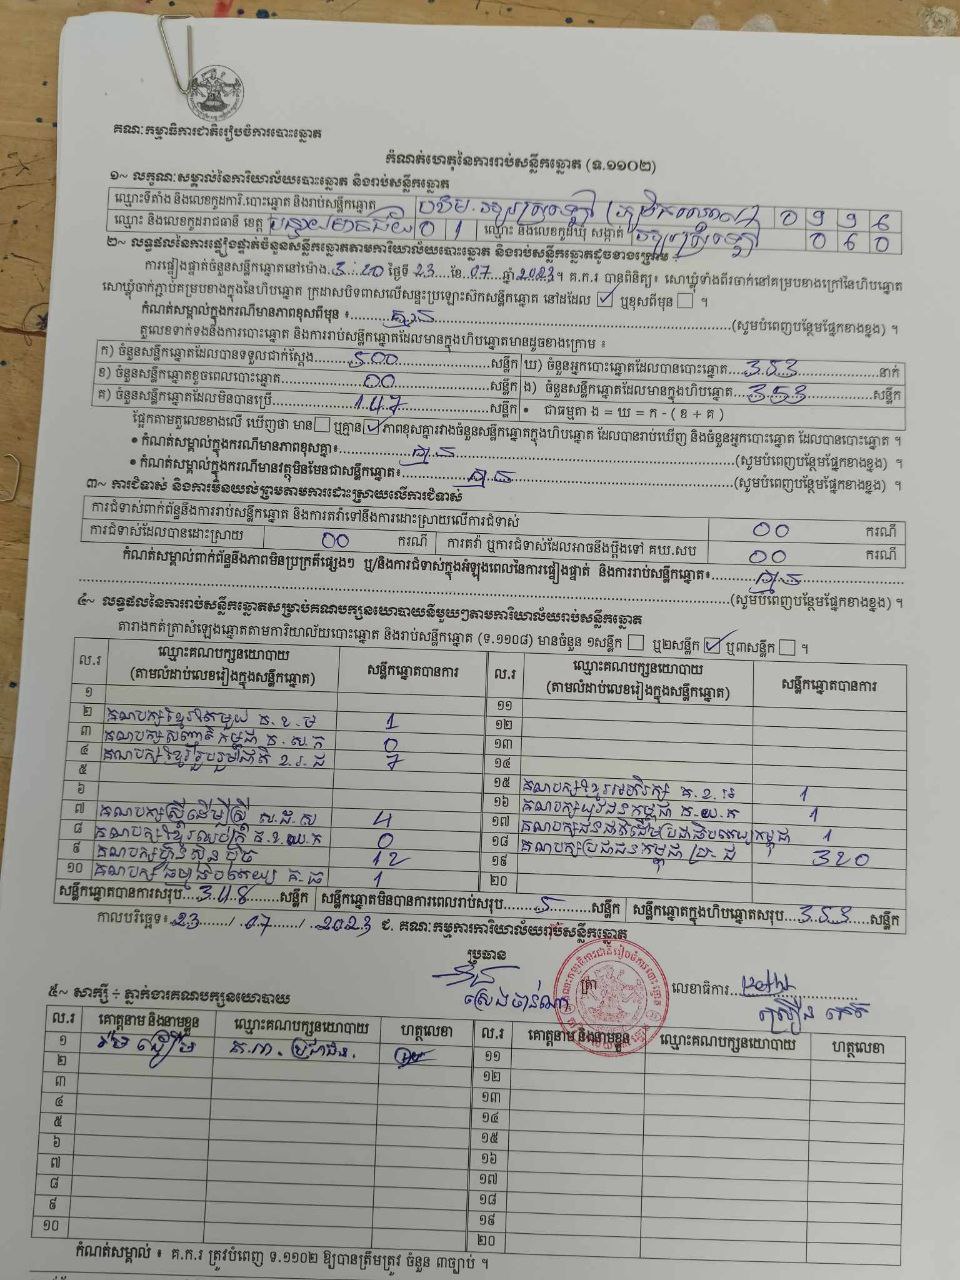 គណៈកម្មាធិការជាតិរៀបចំការបោះឆ្នោត
កំណត់ហេតុនៃការរាប់សន្លឹកឆ្នោត (ទ.១១០២)
១~ លក្ខណៈសម្គាល់នៃការិយាល័យបោះឆ្នោត និងរាប់សន្លឹកឆ្នោត
ឈ្មោះទីតាំង និងលេខកូដការិ.បោះឆ្នោត និងរាប់សន្លឹកឆ្នោត 0 9 9 6
ឈ្មោះ និងលេខកូដរាជធានី ខេត្ត បន្ទាយមានជ័យ 0 1 ឈ្មោះ និងលេខកូដឃុំ សង្កាត់ 0 6 0
២~ លទ្ធផលនៃការផ្ទៀងផ្ទាត់ចំនួនសន្លឹកឆ្នោតតាមការិយាល័យបោះឆ្នោត និងរាប់សន្លឹកឆ្នោតដូចខាងក្រោម
ការផ្ទៀងផ្ទាត់ចំនួនសន្លឹកឆ្នោតនៅម៉ោង 3:20 ថ្ងៃទី 23 ខែ 07 ឆ្នាំ 2023 ។ គ.ក.រ បានពិនិត្យ៖ សោឃ្លុំទាំងពីរចាក់នៅគម្របខាងក្រៅនៃហិបឆ្នោត
សោឃ្លុំចាក់ភ្ជាប់គម្របខាងក្នុងនៃហិបឆ្នោត ក្រដាសបិទពាសលើសន្ទះប្រឡោះសិកសន្លឹកឆ្នោត នៅដដែល ☑ ឬខុសពីមុន ☐ ។
កំណត់សម្គាល់ក្នុងករណីមានភាពខុសពីមុន ៖ គ្មាន (សូមបំពេញបន្ថែមផ្នែកខាងខ្នង) ។
តួលេខទាក់ទងនឹងការបោះឆ្នោត និងការរាប់សន្លឹកឆ្នោតដែលមានក្នុងហិបឆ្នោតមានដូចខាងក្រោម ៖
ក) ចំនួនសន្លឹកឆ្នោតដែលបានទទួលជាក់ស្តែង 500 សន្លឹក ឃ) ចំនួនអ្នកបោះឆ្នោតដែលបានបោះឆ្នោត 353 នាក់
ខ) ចំនួនសន្លឹកឆ្នោតខូចពេលបោះឆ្នោត 00 សន្លឹក ង) ចំនួនសន្លឹកឆ្នោតដែលមានក្នុងហិបឆ្នោត 353 សន្លឹក
គ) ចំនួនសន្លឹកឆ្នោតដែលមិនបានប្រើ 147 សន្លឹក • ជាធម្មតា ង = ឃ = ក - ( ខ + គ )
ផ្អែកតាមតួលេខខាងលើ ឃើញថា មាន ☐ ឬគ្មាន ☑ ភាពខុសគ្នារវាងចំនួនសន្លឹកឆ្នោតក្នុងហិបឆ្នោត ដែលបានរាប់ឃើញ និងចំនួនអ្នកបោះឆ្នោត ដែលបានបោះឆ្នោត ។
• កំណត់សម្គាល់ក្នុងករណីមានភាពខុសគ្នា៖ គ្មាន (សូមបំពេញបន្ថែមផ្នែកខាងខ្នង) ។
• កំណត់សម្គាល់ក្នុងករណីមានវត្ថុមិនមែនជាសន្លឹកឆ្នោត៖ គ្មាន (សូមបំពេញបន្ថែមផ្នែកខាងខ្នង) ។
៣~ ការជំទាស់ និងការមិនយល់ព្រមតាមការដោះស្រាយលើការជំទាស់
ការជំទាស់ពាក់ព័ន្ធនឹងការរាប់សន្លឹកឆ្នោត និងការតវ៉ាទៅនឹងការដោះស្រាយលើការជំទាស់ 00 ករណី
ការជំទាស់ដែលបានដោះស្រាយ 00 ករណី ការតវ៉ា ឬការជំទាស់ដែលអាចនឹងប្តឹងទៅ គឃ.សប 00 ករណី
កំណត់សម្គាល់ពាក់ព័ន្ធនឹងភាពមិនប្រក្រតីផ្សេងៗ ឬ/និងការជំទាស់ក្នុងអំឡុងពេលនៃការផ្ទៀងផ្ទាត់ និងការរាប់សន្លឹកឆ្នោត៖ គ្មាន
(សូមបំពេញបន្ថែមផ្នែកខាងខ្នង) ។
៤~ លទ្ធផលនៃការរាប់សន្លឹកឆ្នោតសម្រាប់គណបក្សនយោបាយនីមួយៗតាមការិយាល័យរាប់សន្លឹកឆ្នោត
តារាងកត់ត្រាសំឡេងឆ្នោតតាមការិយាល័យបោះឆ្នោត និងរាប់សន្លឹកឆ្នោត (ទ.១១០៨) មានចំនួន ១សន្លឹក ☐ ឬ២សន្លឹក ☑ ឬ៣សន្លឹក ☐ ។
ល.រ ឈ្មោះគណបក្សនយោបាយ (តាមលំដាប់លេខរៀងក្នុងសន្លឹកឆ្នោត) សន្លឹកឆ្នោតបានការ ល.រ ឈ្មោះគណបក្សនយោបាយ (តាមលំដាប់លេខរៀងក្នុងសន្លឹកឆ្នោត) សន្លឹកឆ្នោតបានការ
១ ១១
២ គណបក្សខ្មែរតែមួយ គ.ខ.ម 1 ១២
៣ គណបក្សសញ្ជាតិកម្ពុជា គ.ស.ក 0 ១៣
៤ គណបក្សខ្មែររួបរួមជាតិ ខ.រ.ជ 7 ១៤
៥ ១៥ គណបក្សខ្មែរអភិរក្ស គ.ខ.អ 1
៦ ១៦ គណបក្សយុវជនកម្ពុជា គ.យ.ក 1
៧ គណបក្សស្ត្រីដើម្បីស្ត្រី ស.ដ.ស 4 ១៧ គណបក្សជនជាតិដើមប្រជាធិបតេយ្យកម្ពុជា 1
៨ 0 ១៨ គណបក្សប្រជាជនកម្ពុជា 320
៩ គណបក្សហ្វ៊ុនស៊ិនប៉ិច 12 ១៩
១០ គណបក្សធម្មាធិបតេយ្យ គ.ធ 1 ២០
សន្លឹកឆ្នោតបានការសរុប 348 សន្លឹក សន្លឹកឆ្នោតមិនបានការពេលរាប់សរុប 5 សន្លឹក សន្លឹកឆ្នោតក្នុងហិបឆ្នោតសរុប 353 សន្លឹក
កាលបរិច្ឆេទ៖ 23 / 07 / 2023 ជ. គណៈកម្មការការិយាល័យរាប់សន្លឹកឆ្នោត
ប្រធាន
ត្រា លេខាធិការ
៥~ សាក្សី ÷ ភ្នាក់ងារគណបក្សនយោបាយ
ល.រ គោត្តនាម និងនាមខ្លួន ឈ្មោះគណបក្សនយោបាយ ហត្ថលេខា ល.រ គោត្តនាម និងនាមខ្លួន ឈ្មោះគណបក្សនយោបាយ ហត្ថលេខា
១ ១១
២ ១២
៣ ១៣
៤ ១៤
៥ ១៥
៦ ១៦
៧ ១៧
៨ ១៨
៩ ១៩
១០ ២០
កំណត់សម្គាល់ ៖ គ.ក.រ ត្រូវបំពេញ ទ.១១០២ ឱ្យបានត្រឹមត្រូវ ចំនួន ៣ច្បាប់ ។